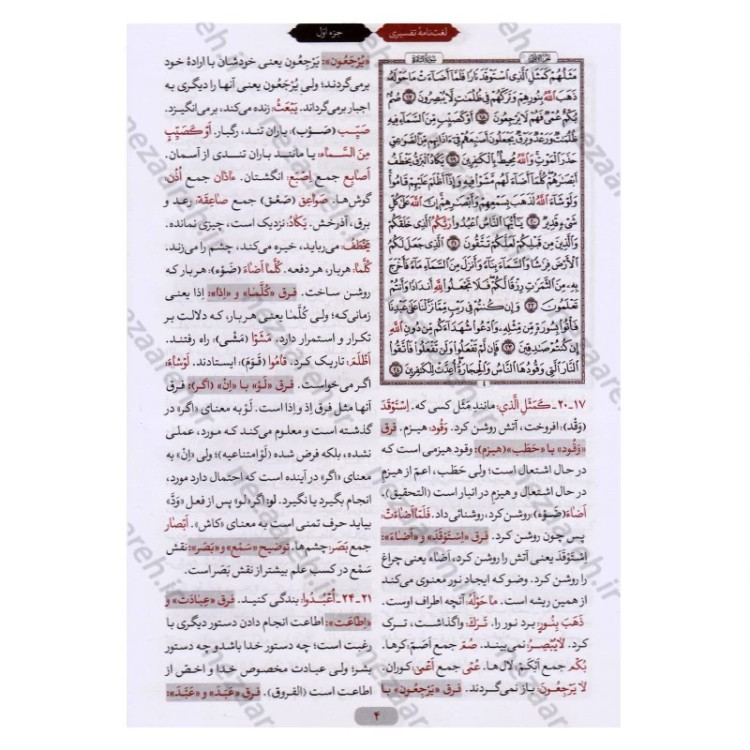 لغت‌نامهٔ تفسیری
جزء اوّل
مَثَلُهُمْ كَمَثَلِ الَّذِي اسْتَوْقَدَ نَارًا فَلَمَّا أَضَاءَتْ مَا حَوْلَهُ
ذَهَبَ اللَّهُ بِنُورِهِمْ وَتَرَكَهُمْ فِي ظُلُمَاتٍ لَا يُبْصِرُونَ ﴿١٧﴾ صُمٌّ
بُكْمٌ عُمْيٌ فَهُمْ لَا يَرْجِعُونَ ﴿١٨﴾ أَوْ كَصَيِّبٍ مِنَ السَّمَاءِ فِيهِ
ظُلُمَاتٌ وَرَعْدٌ وَبَرْقٌ يَجْعَلُونَ أَصَابِعَهُمْ فِي آذَانِهِمْ مِنَ الصَّوَاعِقِ
حَذَرَ الْمَوْتِ وَاللَّهُ مُحِيطٌ بِالْكَافِرِينَ ﴿١٩﴾ يَكَادُ الْبَرْقُ يَخْطَفُ
أَبْصَارَهُمْ كُلَّمَا أَضَاءَ لَهُمْ مَشَوْا فِيهِ وَإِذَا أَظْلَمَ عَلَيْهِمْ قَامُوا
وَلَوْ شَاءَ اللَّهُ لَذَهَبَ بِسَمْعِهِمْ وَأَبْصَارِهِمْ إِنَّ اللَّهَ عَلَى كُلِّ
شَيْءٍ قَدِيرٌ ﴿٢٠﴾ يَا أَيُّهَا النَّاسُ اعْبُدُوا رَبَّكُمُ الَّذِي خَلَقَكُمْ
وَالَّذِينَ مِنْ قَبْلِكُمْ لَعَلَّكُمْ تَتَّقُونَ ﴿٢١﴾ الَّذِي جَعَلَ لَكُمُ
الْأَرْضَ فِرَاشًا وَالسَّمَاءَ بِنَاءً وَأَنْزَلَ مِنَ السَّمَاءِ مَاءً فَأَخْرَجَ
بِهِ مِنَ الثَّمَرَاتِ رِزْقًا لَكُمْ فَلَا تَجْعَلُوا لِلَّهِ أَنْدَادًا وَأَنْتُمْ
تَعْلَمُونَ ﴿٢٢﴾ وَإِنْ كُنْتُمْ فِي رَيْبٍ مِمَّا نَزَّلْنَا عَلَى عَبْدِنَا
فَأْتُوا بِسُورَةٍ مِنْ مِثْلِهِ وَادْعُوا شُهَدَاءَكُمْ مِنْ دُونِ اللَّهِ
إِنْ كُنْتُمْ صَادِقِينَ ﴿٢٣﴾ فَإِنْ لَمْ تَفْعَلُوا وَلَنْ تَفْعَلُوا فَاتَّقُوا
النَّارَ الَّتِي وَقُودُهَا النَّاسُ وَالْحِجَارَةُ أُعِدَّتْ لِلْكَافِرِينَ ﴿٢٤﴾
۱۷ـ۲۰ـ كَمَثَلِ الَّذي: مانند مَثَل کسی که. اِسْتَوْقَدَ
(وَقْد): افروخت، آتش روشن کرد. وَقود: هیزم. فرق
«وَقُود» با «حَطَب» (هیزم): وقود هیزمی است که
در حال اشتعال است؛ ولی حَطَب، اعمّ از هیزم
در حال اشتعال و هیزم در انبار است (التحقیق).
أضاءَ (ضَوْء): روشن کرد، روشنائی داد. فَلَمّا أضاءَتْ:
پس چون روشن کرد. فرق «اِسْتَوْقَدَ» و «أضاءَ»:
اسْتَوْقَدَ یعنی آتش را روشن کرد، أضاءَ یعنی چراغ
را روشن کرد. وضو که ایجاد نور معنوی می‌کند
از همین ریشه است. ما حَوْلَهُ: آنچه اطراف اوست.
ذَهَبَ بِنُورِ: برد نور را. تَرَكَ: واگذاشت، ترک
کرد. لا یُبْصِرُونَ: نمی‌بینند. صُمّ جمع أصَمّ: کرها.
بُكْم جمع أبْكَم: لال‌ها. عُمْی جمع أعْمی: کوران.
لا یَرْجِعُونَ: باز نمی‌گردند. فرق «یَرْجِعُون» با
«یُرْجَعُون»: یَرْجِعُون یعنی خودشان با ارادهٔ خود
برمی‌گردند؛ ولی یُرْجَعُون یعنی آنها را دیگری به
اجبار برمی‌گرداند. یَبْعَثُ: زنده می‌کند، برمی‌انگیزد.
صَیِّب (صَوْب): باران تند، رگبار. أوْ كَصَیِّبٍ
مِنَ السَّماء: یا مانند باران تندی از آسمان.
أصابِع جمع إصْبَع: انگشتان. ءاذان جمع أُذُن:
گوش‌ها. صَواعِق (صَعْق) جمع صاعِقَة: رعد و
برق، آذرخش. یَكادُ: نزدیک است، چیزی نمانده.
یَخْطَفُ: می‌رباید، خیره می‌کند، چشم را می‌زند.
كُلَّما: هربار، هر دفعه. كُلَّما أضاءَ (ضَوْء): هربار که
روشن ساخت. فرق «كُلَّما» و «إذا»: إذا یعنی
زمانی‌که؛ ولی كُلَّما یعنی هربار، که دلالت بر
تکرار و استمرار دارد. مَشَوْا (مَشْی): راه رفتند.
أظْلَمَ: تاریک کرد. قامُوا (قَوَمَ): ایستادند. لَوْ شاءَ:
اگر می‌خواست. فرق «لَوْ» با «اِنْ» (اگر): فرق
آنها مثل فرق إذ و إذا است. لَوْ به معنای «اگر» در
گذشته است و معلوم می‌کند که مورد، عملی
نشده، بلکه فرض شده (لَوْ امتناعیه)؛ ولی «اِنْ» به
معنای «اگر» در آینده است که احتمال دارد مورد،
انجام بگیرد یا نگیرد. لو: اگر «لو» پس از فعل «وَدَّ»
بیاید حرف تمنی است به معنای «کاش». أبْصار
جمع بَصَر: چشم‌ها. توضیح «سَمْع» و «بَصَر»: نقش
سَمْع در کسب علم بیشتر از نقش بَصَر است.
۲۱ـ۲۴ـ اُعْبُدُوا: بندگی کنید. فرق «عِبادَت» و
«اِطاعَت»: اطاعت انجام دادن دستور دیگری با
رغبت است؛ چه دستور خدا باشد و چه دستور
بشر؛ ولی عبادت مخصوص خدا و اخصّ از
اطاعت است (الفروق). فرق «عَبَدَ» و «عَبَّدَ»:
۴
nezaareh.ir